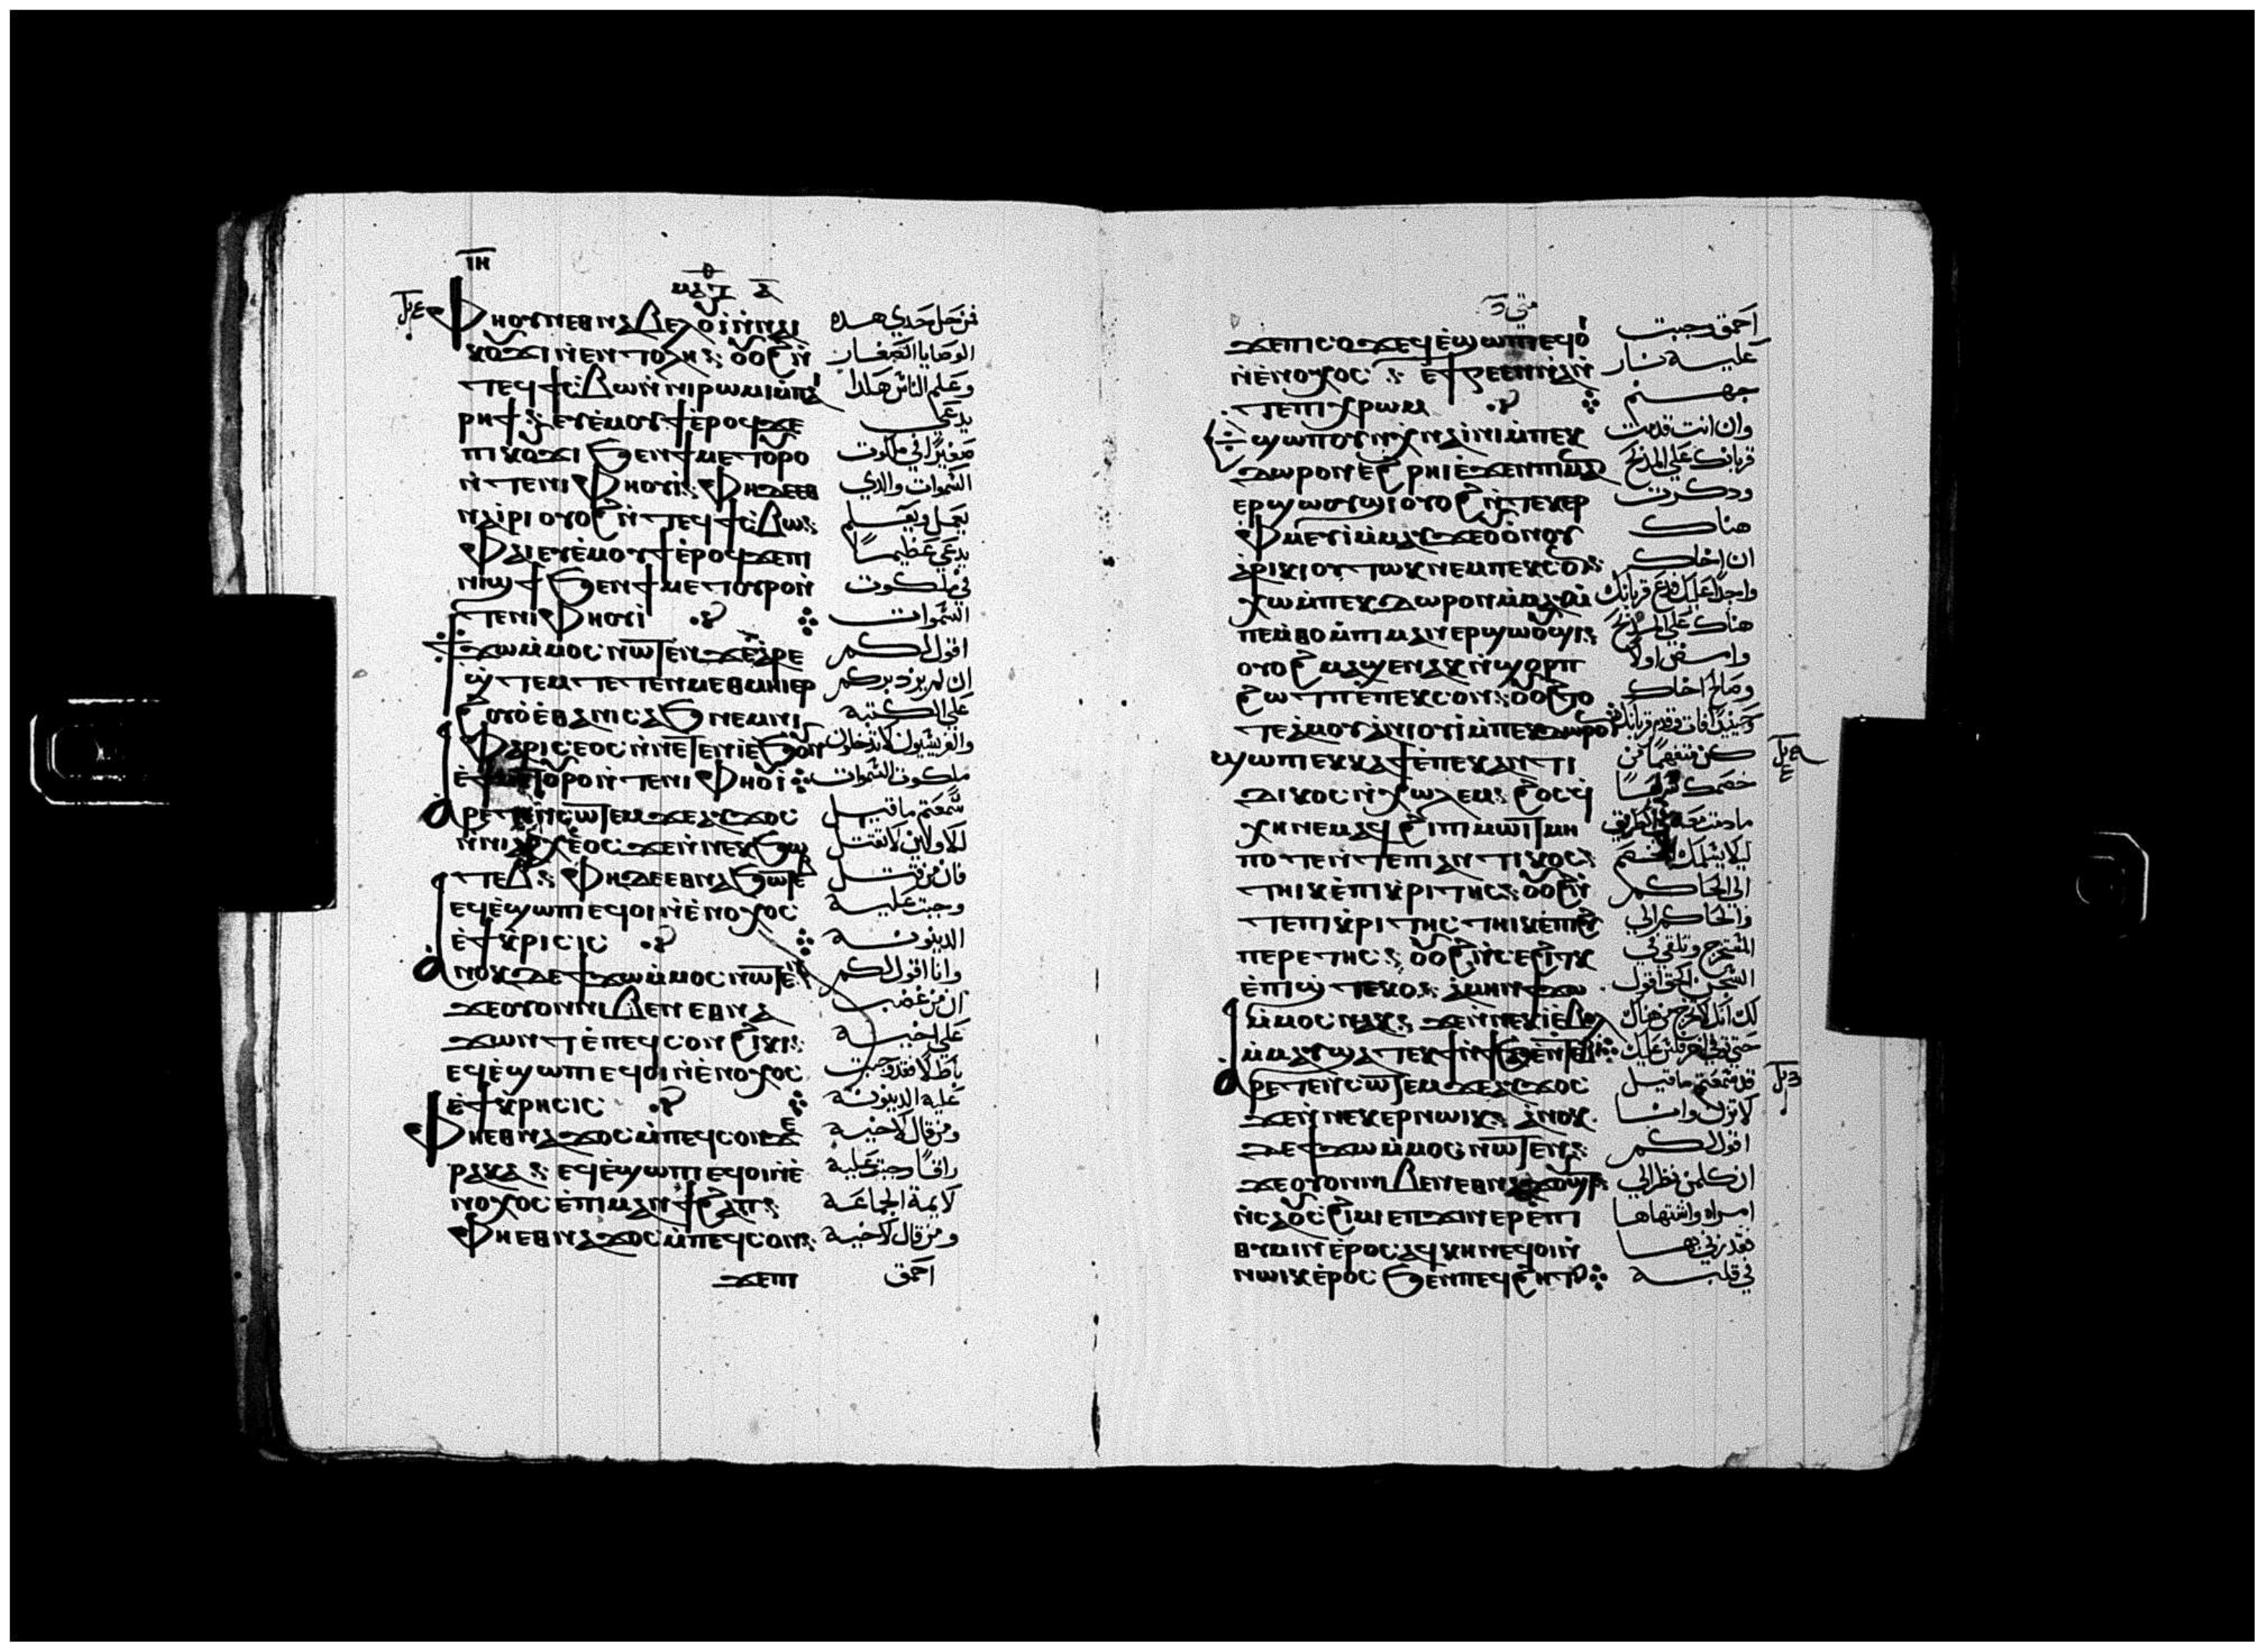 ⲓⲏ
ⲙⲁⲧ ⲇ
ⲫⲏⲟⲩⲛ ⲉⲑⲛⲁⲃⲉⲗ ⲟⲩⲓ ⲛⲛⲁⲓ فمن حل احدي هذه
ⲕⲟⲩϫⲓ ⲛⲉⲛⲧⲟⲗⲏ ⲟⲩⲟϩ ⲛ الوصايا الصغار
ⲧⲉϥϯⲥⲃⲱ ⲛⲛⲓⲣⲱⲙⲓ ⲙⲡⲁⲓ وعلم الناس هكذا
ⲣⲏϯ ⲉⲩⲉⲙⲟⲩϯ ⲉⲣⲟϥ ϫⲉ يدعى
ⲡⲓⲕⲟⲩϫⲓ ϧⲉⲛ ϯⲙⲉⲧⲟⲩⲣⲟ صغيرًا في ملكوت
ⲛⲧⲉ ⲛⲓⲫⲏⲟⲩⲓ ⲫⲏ ⲇⲉ ⲉⲑ السموات والذي
ⲛⲁⲓⲣⲓ ⲟⲩⲟϩ ⲛⲧⲉϥϯⲥⲃⲱ يعمل ويعلم
ⲫⲁⲓ ⲉⲩⲉⲙⲟⲩϯ ⲉⲣⲟϥ ϫⲉ ⲡⲓ يدعي عظيمًا
ⲛⲓϣϯ ϧⲉⲛ ϯⲙⲉⲧⲟⲩⲣⲟ ⲛ في ملكوت
ⲧⲉ ⲛⲓⲫⲏⲟⲩⲓ السموات
ϯϫⲱ ⲙⲙⲟⲥ ⲛⲱⲧⲉⲛ ϫⲉ ⲁⲣⲉ اقول لكم
ϣⲧⲉⲙ ⲧⲉⲧⲉⲛⲙⲉⲑⲙⲏⲓ ⲉⲣ ان لم يزد بركم
ϩⲟⲩⲟ ⲉⲑⲁ ⲛⲓⲥⲁϧ ⲛⲉⲙ ⲛⲓ علي الكتبه
ⲫⲁⲣⲓⲥⲉⲟⲥ ⲛⲛⲉⲧⲉⲛⲓ ⲉϧⲟⲩⲛ والفريسيون لا تدخلون
ⲉϯⲙⲉⲧⲟⲩⲣⲟ ⲛⲧⲉ ⲛⲓⲫⲏⲟⲩⲓ ملكوت السموات
ⲁⲣⲉⲧⲉⲛⲥⲱⲧⲉⲙ ϫⲉ ⲁⲩϫⲟⲥ سمعتم ما قيل
ⲛⲛⲓⲁⲣⲭⲉⲟⲥ ϫⲉ ⲛⲛⲉⲕϧⲱ للاولين لا تقتل
ⲧⲉⲃ ⲫⲏ ⲇⲉ ⲉⲑⲛⲁϧⲱⲧⲉⲃ فان من قتل
ⲉϥⲉϣⲱⲡⲓ ⲉϥⲟⲓ ⲛⲉⲛⲟⲭⲟⲥ وجبت عليه
ⲉϯⲕⲣⲓⲥⲓⲥ الدينونه
ⲁⲛⲟⲕ ⲇⲉ ϯϫⲱ ⲙⲙⲟⲥ ⲛⲱⲧⲉⲛ وانا اقول لكم
ϫⲉ ⲟⲩⲟⲛ ⲛⲓⲃⲉⲛ ⲉⲑⲛⲁ ان من غضب
ϫⲱⲛⲧ ⲉⲡⲉϥⲥⲟⲛ ϩⲓⲕⲏ علي اخيه
ⲉϥⲉϣⲱⲡⲓ ⲉϥⲟⲓ ⲛⲉⲛⲟⲭⲟⲥ باطلا فقد وجبت
ⲉϯⲕⲣⲏⲥⲓⲥ عليه الدينونه
ⲫⲏ ⲉⲑⲛⲁϫⲟⲥ ⲙⲡⲉϥⲥⲟⲛ ϫⲉ ومن قال لاخيه
ⲣⲁⲕⲁ ⲉϥⲉϣⲱⲡⲓ ⲉϥⲟⲓ ⲛⲉ راقا وجبت عليه
ⲛⲟⲭⲟⲥ ⲉⲡⲓⲙⲁⲛϯϩⲁⲡ لايمة الجماعه
ⲫⲏ ⲉⲑⲛⲁϫⲟⲥ ⲙⲡⲉϥⲥⲟⲛ ومن قال لاخيه
ϫⲉ ⲡⲓ احمق
متي
ϫⲉ ⲡⲓⲥⲟϫ ⲉϥⲉϣⲱⲡⲓ ⲉϥⲟⲓ احمق وجبت
ⲛⲉⲛⲟⲭⲟⲥ ⲉϯⲅⲉⲉⲛⲛⲁ ⲛ عليه نار
ⲧⲉ ⲡⲓⲭⲣⲱⲙ جهنم
ⲉϣⲱⲡ ⲟⲩⲛ ⲭⲛⲁⲓⲛⲓ ⲙⲡⲉⲕ وان انت قدمت
ⲇⲱⲣⲟⲛ ⲉϩⲣⲏⲓ ⲉϫⲉⲛ ⲡⲓⲙⲁ قربانك علي المذبح
ⲉⲣϣⲱⲟⲩϣⲓ ⲟⲩⲟϩ ⲛⲧⲉⲕⲉⲣ وذكرت
ⲫⲙⲉⲩⲓ ⲙⲙⲁⲩ ϫⲉ ⲟⲩⲟⲛ ⲟⲩ هناك
ⲁⲣⲓⲕⲓ ⲟⲩⲧⲱⲕ ⲛⲉⲙ ⲡⲉⲕⲥⲟⲛ ان اخاك
ⲭⲱ ⲙⲡⲉⲕⲇⲱⲣⲟⲛ ⲙⲙⲁⲩ ⲙ واجدًا عليك فدع قربانك
ⲡⲉⲙⲑⲟ ⲙⲡⲓⲙⲁⲛⲉⲣϣⲱⲟⲩϣⲓ هناك علي المذبح
ⲟⲩⲟϩ ⲙⲁϣⲉⲛⲁⲕ ⲛϣⲟⲣⲡ وامض اولًا
ϩⲱⲧⲡ ⲉⲡⲉⲕⲥⲟⲛ ⲟⲩⲟϩ ⲧⲟ وصالح اخاك
ⲧⲉ ⲁⲙⲟⲩ ⲁⲛⲓⲟⲩⲓ ⲙⲡⲉⲕⲇⲱⲣⲟⲛ وحينيذ فات وقدم قربانك
ϣⲱⲡⲓ ⲉⲕⲕⲁϯ ⲉⲡⲉⲕⲁⲛⲧⲓ كن متفهمًا من
ⲇⲓⲕⲟⲥ ⲛⲭⲱⲗⲉⲙ ϩⲟⲥ ⲉⲕ خصمك
ⲭⲏ ⲛⲉⲙⲁϥ ϩⲓ ⲡⲓⲙⲱⲓⲧ ⲙⲏ ما دمت معه في الطريق
ⲡⲟⲧⲉ ⲛⲧⲉ ⲡⲓⲁⲛⲧⲓⲕⲟⲥ ليلا يسلمك الخصم
ⲧⲏⲓⲕ ⲉⲡⲓⲕⲣⲓⲧⲏⲥ ⲟⲩⲟϩ ⲛ الي الحاكم
ⲧⲉ ⲡⲓⲕⲣⲓⲧⲏⲥ ⲧⲏⲓⲕ ⲉⲡⲓϩⲩ والحاكم الي
ⲡⲉⲣⲉⲧⲏⲥ ⲟⲩⲟϩ ⲛⲥⲉϩⲓⲧⲕ المستخرج وتلقي في
ⲉⲡⲓϣⲧⲉⲕⲟ ⲁⲙⲏⲛ ϯϫⲱ السجن الحق اقول
ⲙⲙⲟⲥ ⲛⲁⲕ ϫⲉ ⲛⲛⲉⲕⲓ ⲉⲃⲟⲗ لك انك لا تخرج من هناك
ⲙⲙⲁⲩ ϣⲁⲧⲉⲕϯ حتي توفي اخر فلس عليك
ⲁⲣⲉⲧⲉⲛⲥⲱⲧⲉⲙ ϫⲉ ⲁⲩϫⲟⲥ قد سمعتم ما قيل
ϫⲉ ⲛⲛⲉⲕⲉⲣⲛⲱⲓⲕ ⲁⲛⲟⲕ لا تزن وانا
ⲇⲉ ϯϫⲱ ⲙⲙⲟⲥ ⲛⲱⲧⲉⲛ اقول لكم
ϫⲉ ⲟⲩⲟⲛ ⲛⲓⲃⲉⲛ ⲉⲑⲛⲁϫⲟⲩϣⲧ ان كلمن نظر الي
ⲛⲥⲁ ⲟⲩⲥϩⲓⲙⲓ ⲉⲡϫⲓⲛⲉⲣⲉⲡⲓ امراه واشتهاها
ⲑⲩⲙⲓⲛ ⲉⲣⲟⲥ ⲁϥⲕⲏⲛ ⲉϥⲟⲓ ⲛ فقد زني بها
ⲛⲱⲓⲕ ⲉⲣⲟⲥ ϧⲉⲛ ⲡⲉϥϩⲏⲧ في قلبه